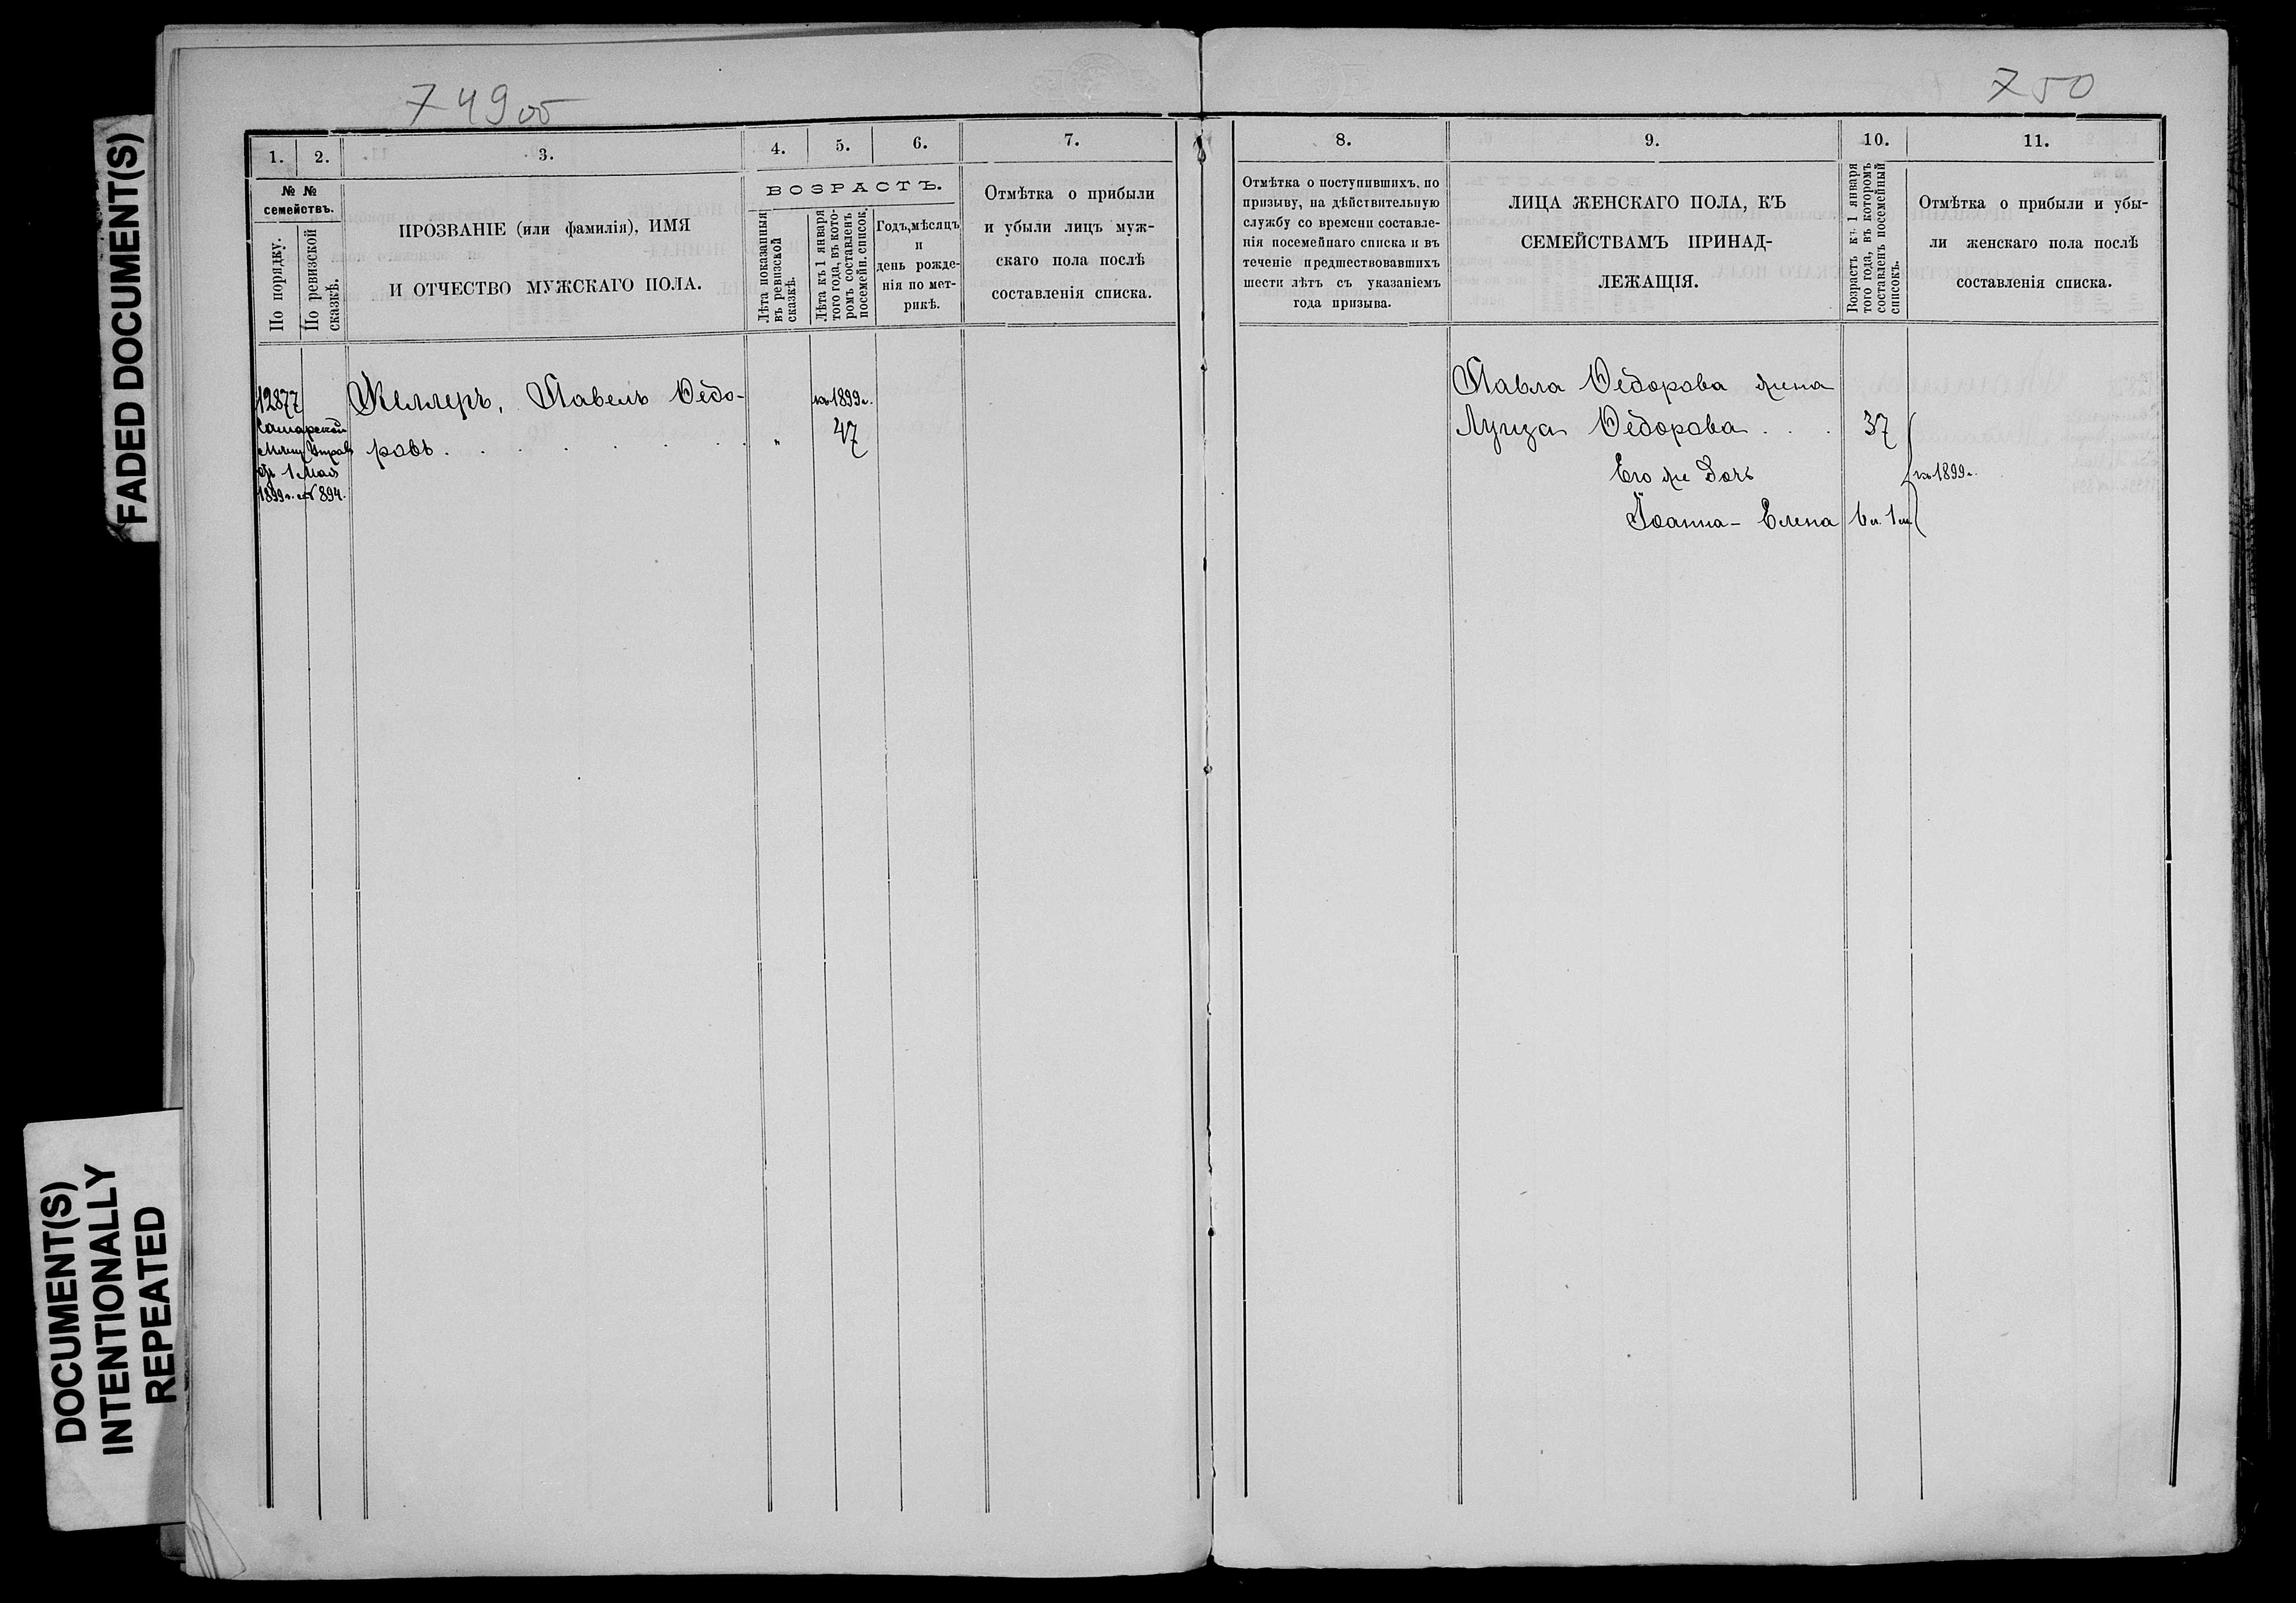 749об
750
FADED DOCUMENT(S)
DOCUMENT(S)
INTENTIONALLY
REPEATED
1.
2.
3.
4.
5.
6.
7.
№ №
семействъ.
По порядку.
По ревизской
сказкѣ.
ПРОЗВАНІЕ (или фамилія), ИМЯ
И ОТЧЕСТВО МУЖСКАГО ПОЛА.
ВОЗРАСТЪ.
Лѣта показанныя
въ ревизской
сказкѣ.
Лѣта къ 1 января
того года, въ кото-
ромъ составленъ
посемейн. список.
Годъ, мѣсяцъ
и
день рожде-
нія по мет-
рикѣ.
Отмѣтка о прибыли
и убыли лицъ муж-
скаго пола послѣ
составленія списка.
12877
Самарской
Мѣщ. Управ
отъ 1 Мая
1899 г. № 894.
Келлеръ, Павелъ Ѳедо-
ровъ . . . . . . .
"
къ 1899 г.
47
8.
9.
10.
11.
Отмѣтка о поступившихъ, по
призыву, на дѣйствительную
службу со времени составле-
нія посемейнаго списка и въ
теченіе предшествовавшихъ
шести лѣтъ съ указаніемъ
года призыва.
ЛИЦА ЖЕНСКАГО ПОЛА, КЪ
СЕМЕЙСТВАМЪ ПРИНАД-
ЛЕЖАЩІЯ.
Возрастъ къ 1 января
того года, въ которомъ
составленъ посемейный
списокъ.
Отмѣтка о прибыли и убы-
ли женскаго пола послѣ
составленія списка.
Павла Ѳедорова жена
Луиза Ѳедорова . . . 37
Его же дочь
къ 1899 г.
Іоанна - Елена 6 л. 1 м.